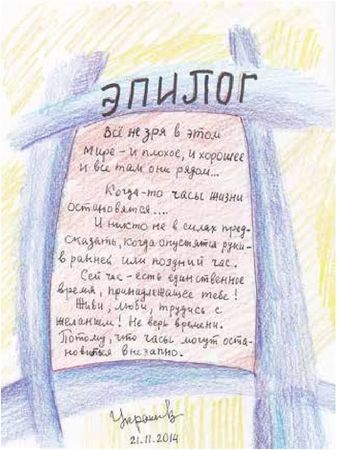 ЭПИЛОГ
Всё не зря в этом
мире – и плохое, и хорошее
и все там они рядом...
Когда-то часы жизни
остановятся....
И никто не в силах пред-
сказать, когда опустятся руки-
в ранней или поздний час.
Сей час - есть единственное
время, принадлежащее тебе!
Живи, люби, трудись с
желанием! Не верь времени.
Потому, что часы могут оста-
новиться внезапно.
21.11.2014